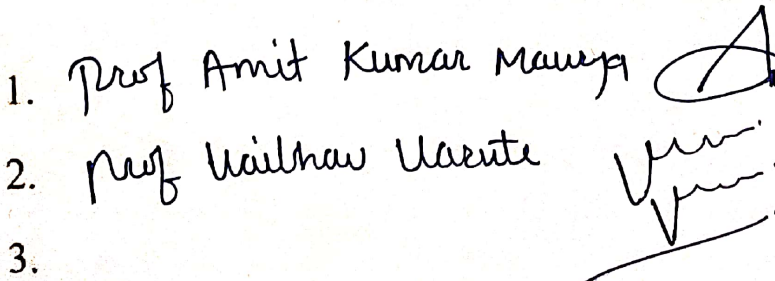 1. Prof Amit Kumar Maurya
2. Prof Vaibhav Varute
3.